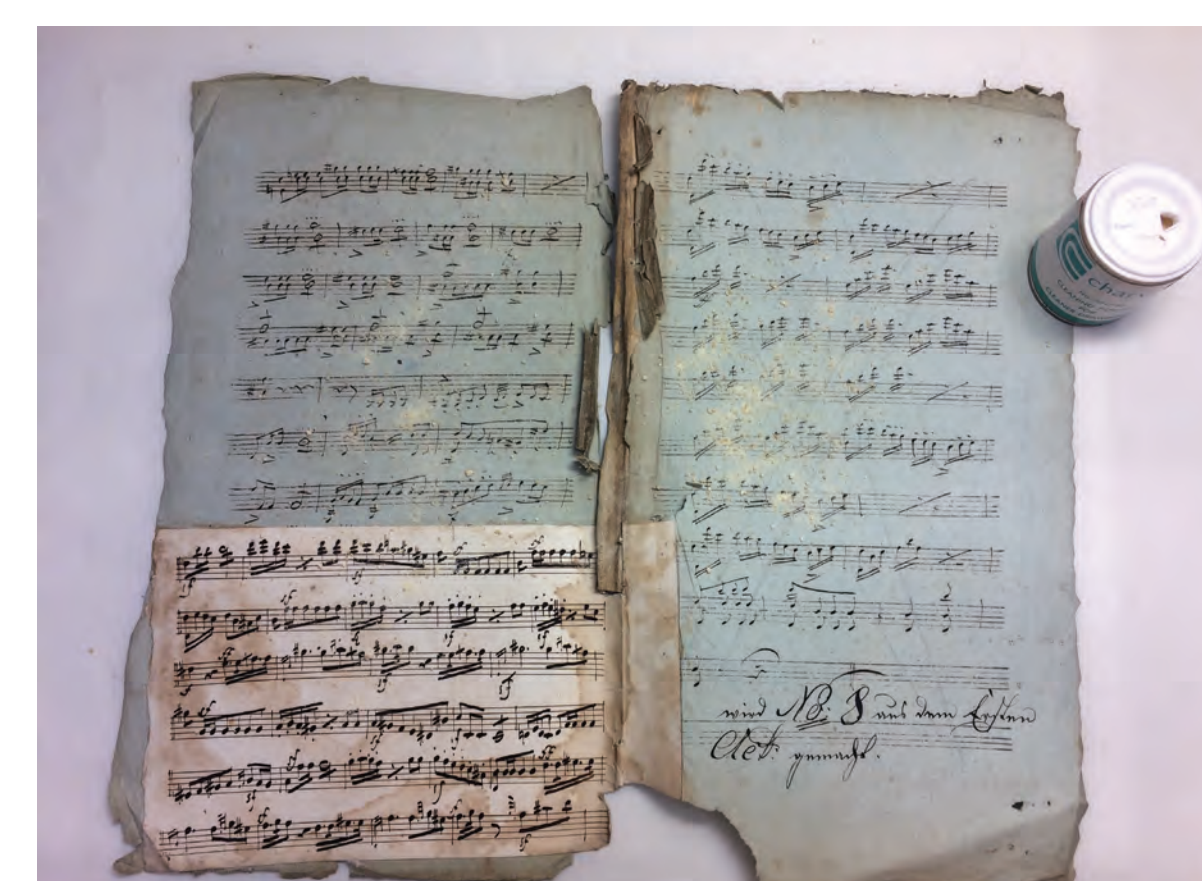 wird No: 8 aus dem Ersten
Act: gemacht.